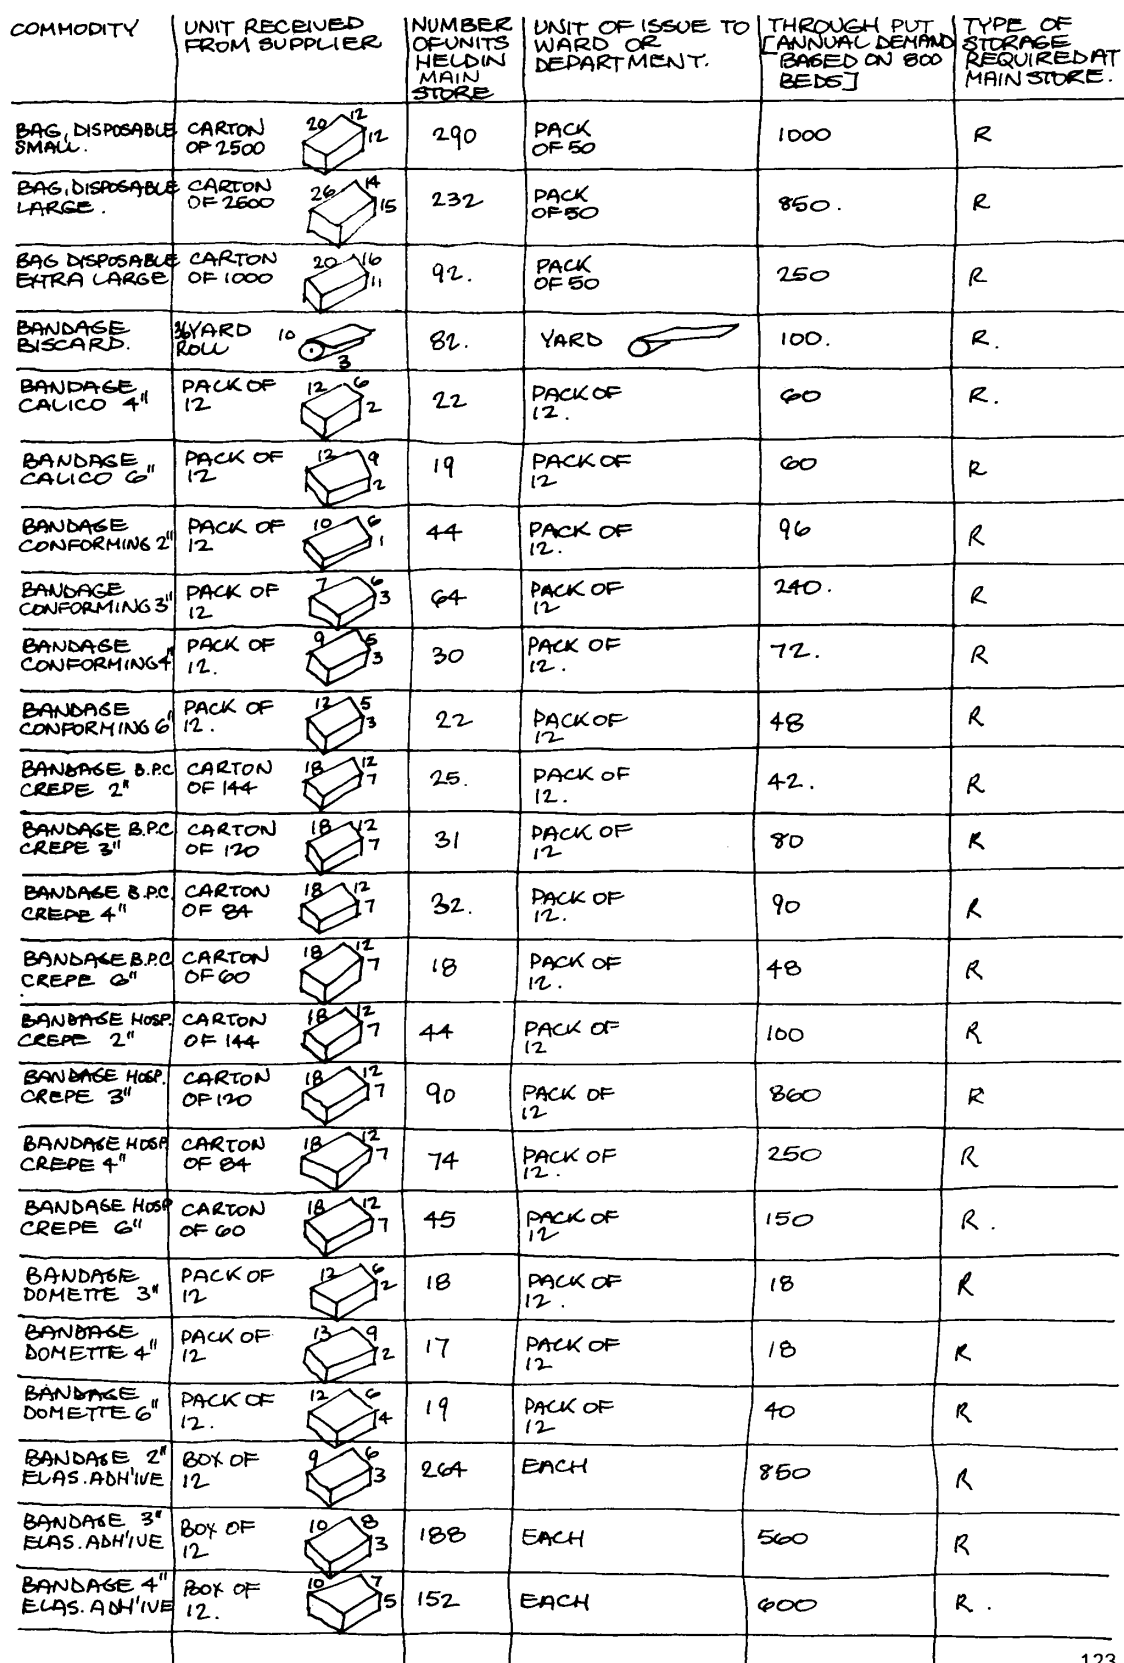 COMMODITY
UNIT RECEIVED
FROM SUPPLIER
NUMBER
OF UNITS
HELD IN
MAIN
STORE
UNIT OF ISSUE TO
WARD OR
DEPARTMENT.
THROUGH PUT
[ANNUAL DEMAND
BASED ON 800
BEDS]
TYPE OF
STORAGE
REQUIRED AT
MAIN STORE.
BAG, DISPOSABLE
SMALL.
CARTON
OF 2500
20 12
12
290
PACK
OF 50
1000
R
BAG, DISPOSABLE
LARGE.
CARTON
OF 2500
26 14
15
232
PACK
OF 50
850.
R
BAG DISPOSABLE
EXTRA LARGE
CARTON
OF 1000
20 16
11
92.
PACK
OF 50
250
R
BANDAGE
BISCARD.
36 YARD
ROLL
10
3
82.
YARD
100.
R.
BANDAGE
CALICO 4"
PACK OF
12
12 6
2
22
PACK OF
12.
60
R.
BANDAGE
CALICO 6"
PACK OF
12
12 9
2
19
PACK OF
12
60
R
BANDAGE
CONFORMING 2"
PACK OF
12
10 6
1
44
PACK OF
12.
96
R
BANDAGE
CONFORMING 3"
PACK OF
12
7 6
3
64
PACK OF
12
240.
R
BANDAGE
CONFORMING 4"
PACK OF
12.
9 5
3
30
PACK OF
12.
72.
R
BANDAGE
CONFORMING 6"
PACK OF
12.
12 5
3
22
PACK OF
12
48
R
BANDAGE B.P.C
CREPE 2"
CARTON
OF 144
18 12
7
25.
PACK OF
12.
42.
R
BANDAGE B.P.C
CREPE 3"
CARTON
OF 120
18 12
7
31
PACK OF
12
80
R
BANDAGE B.P.C.
CREPE 4"
CARTON
OF 84
18 12
7
32.
PACK OF
12.
90
R
BANDAGE B.P.C
CREPE 6"
CARTON
OF 60
18 12
7
18
PACK OF
12.
48
R
BANDAGE HOSP.
CREPE 2"
CARTON
OF 144
18 12
7
44
PACK OF
12
100
R
BANDAGE HOSP.
CREPE 3"
CARTON
OF 120
18 12
7
90
PACK OF
12
860
R
BANDAGE HOSP
CREPE 4"
CARTON
OF 84
18 12
7
74
PACK OF
12.
250
R
BANDAGE HOSP
CREPE 6"
CARTON
OF 60
18 12
7
45
PACK OF
12
150
R.
BANDAGE
DOMETTE 3"
PACK OF
12
12 6
2
18
PACK OF
12.
18
R
BANDAGE
DOMETTE 4"
PACK OF
12
13 9
2
17
PACK OF
12
18
R
BANDAGE
DOMETTE 6"
PACK OF
12.
12 6
4
19
PACK OF
12
40
R
BANDAGE 2"
ELAS. ADH'IVE
BOX OF
12
9 6
3
264
EACH
850
R
BANDAGE 3"
ELAS. ADH'IVE
BOX OF
12
10 8
3
188
EACH
560
R
BANDAGE 4"
ELAS. ADH'IVE
BOX OF
12.
10 7
5
152
EACH
600
R.
123